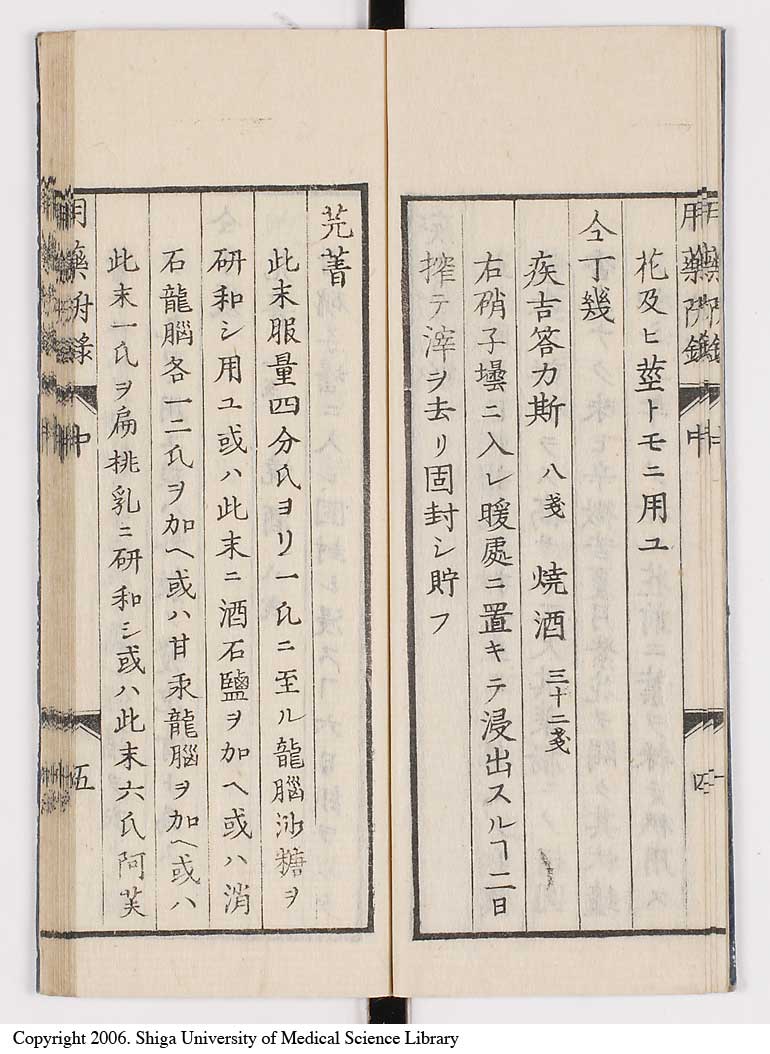 花及ヒ莖トモニ用ユ
仝丁幾
疾吉答力斯 八戔 焼酒 三十二戔
右硝子壜ニ入レ暖處ニ置キテ浸出スルヿ二日
搾テ滓ヲ去リ固封シ貯フ
芫菁
此末服量四分氏ヨリ一氏ニ至ル龍腦沙糖ヲ
研和シ用ユ或ハ此末ニ酒石鹽ヲ加ヘ或ハ消
石龍腦各一二氏ヲ加ヘ或ハ甘汞龍腦ヲ加ヘ或ハ
此末一氏ヲ扁桃乳ニ研和シ或ハ此末六氏阿芙
用藥附錄
中
五
Copyright 2006. Shiga University of Medical Science Library